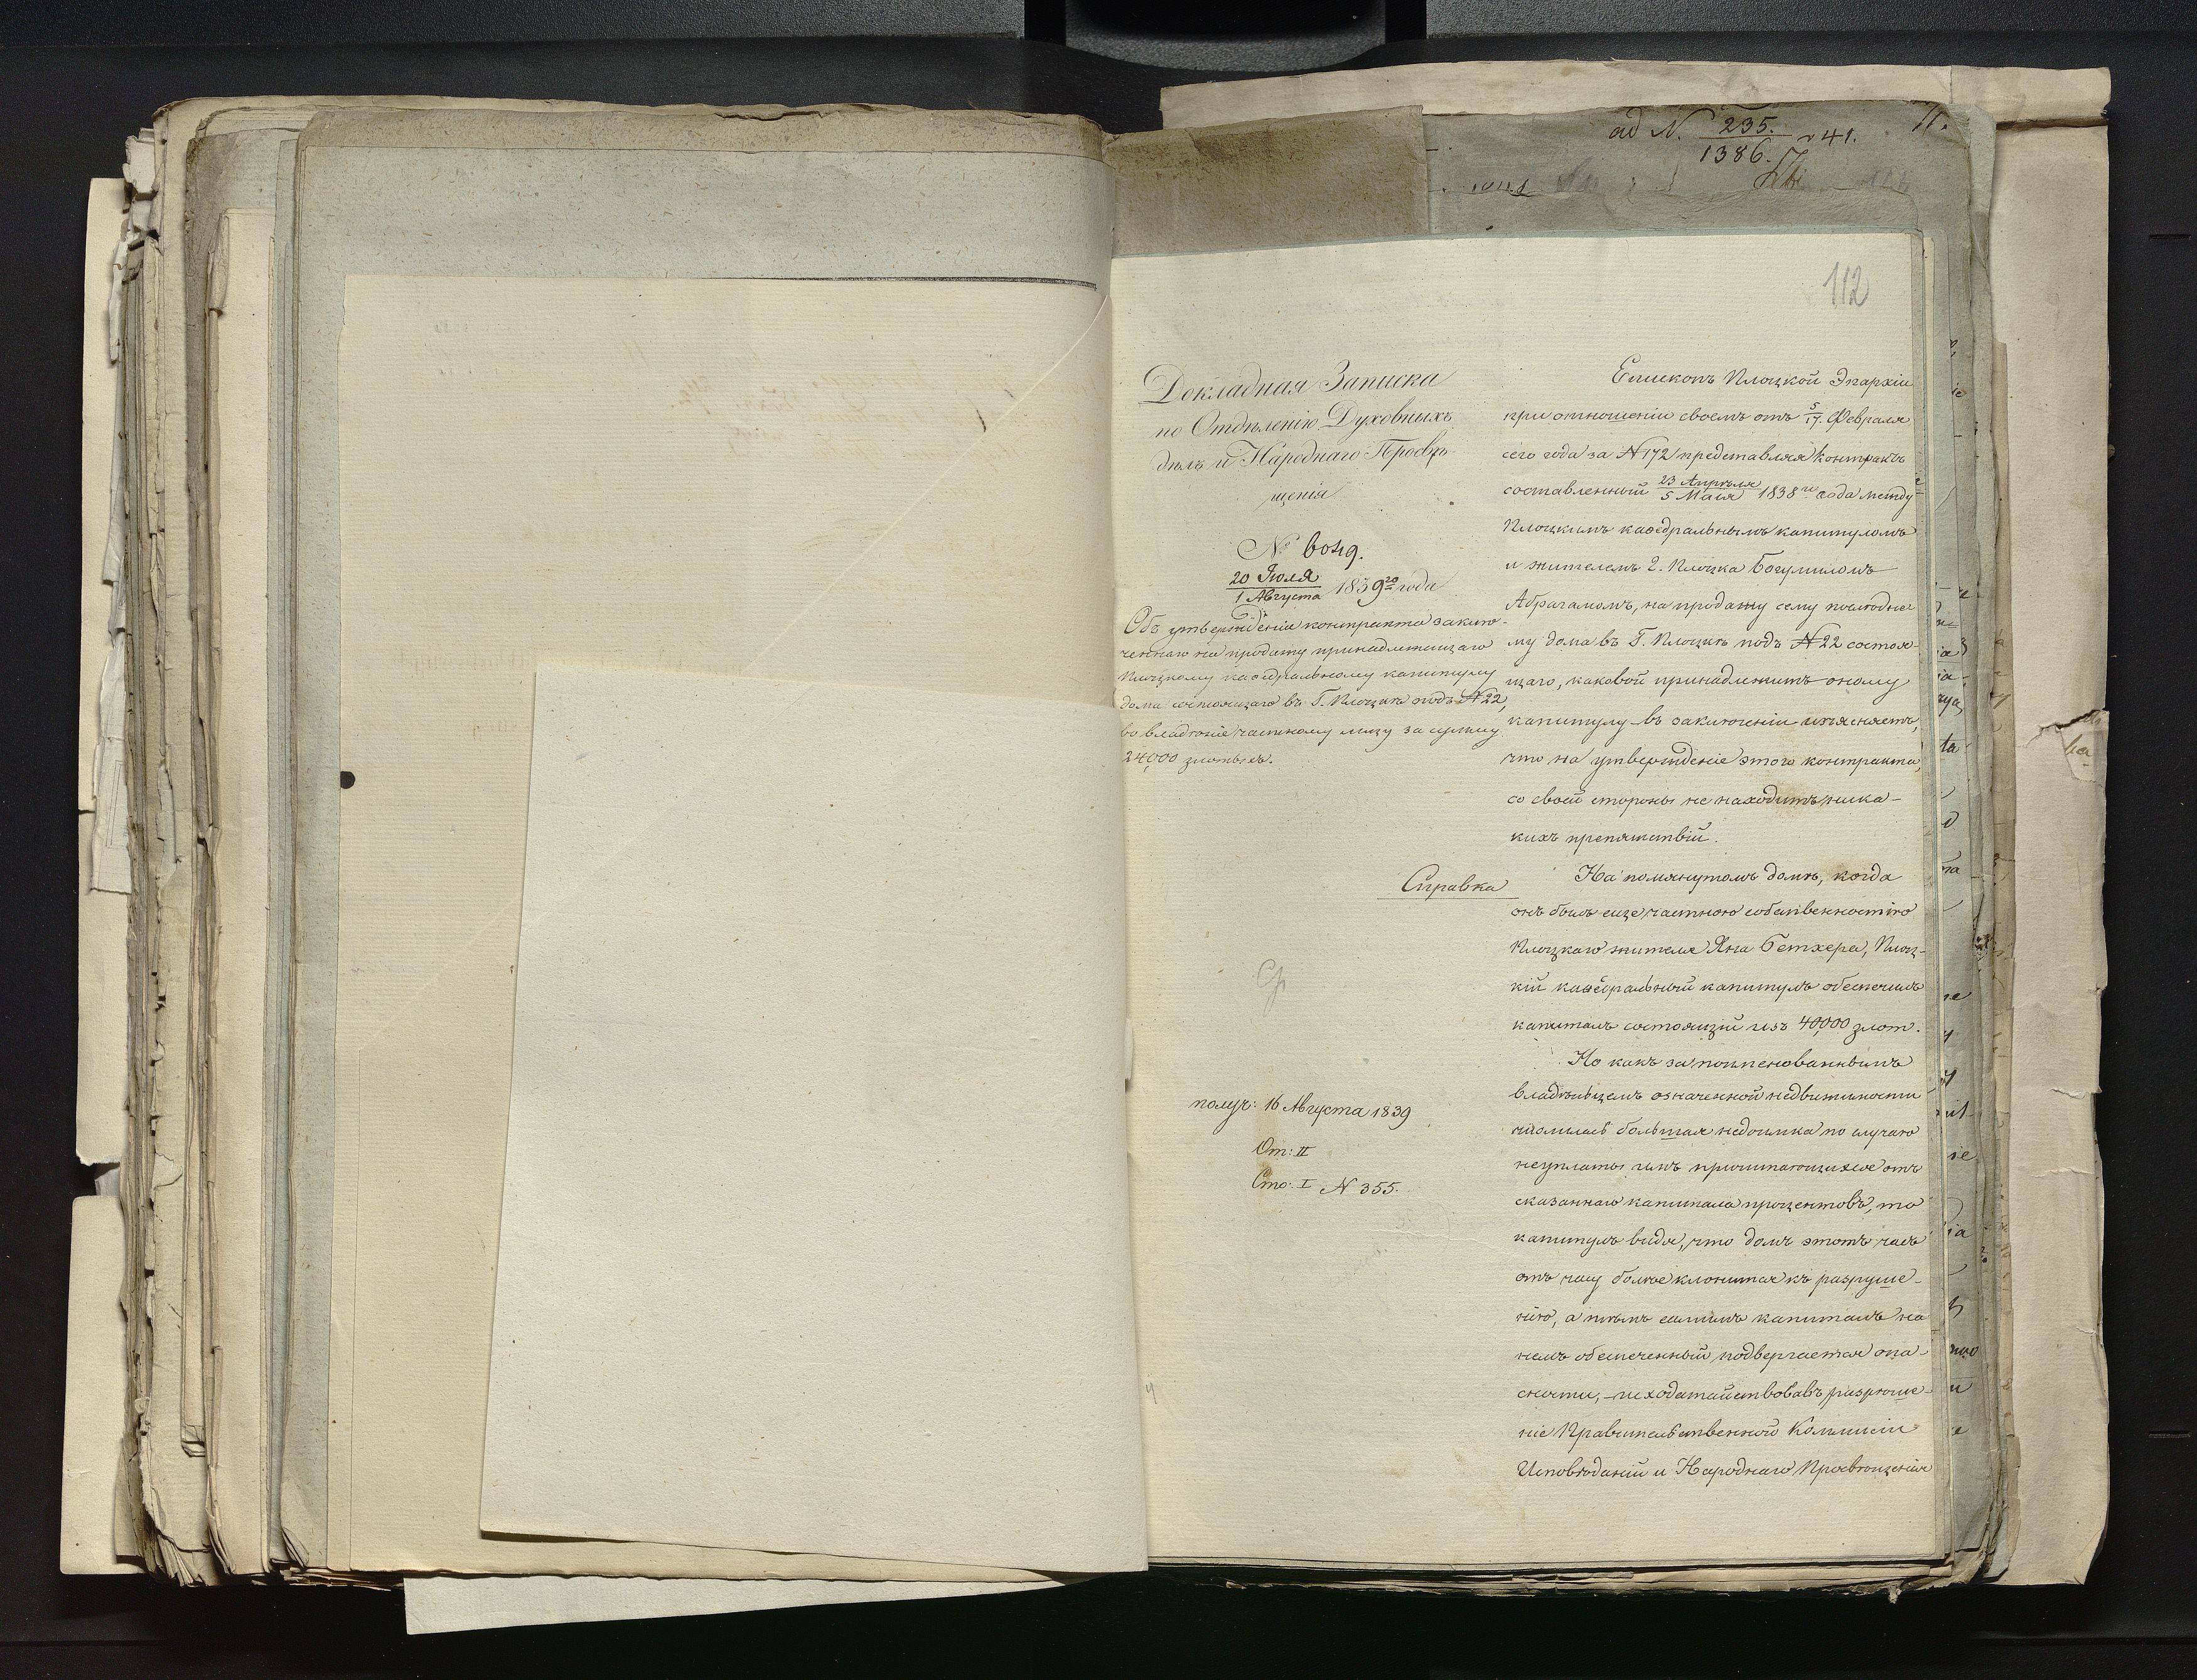 ad N. 235. r 41.
1386.
11.
112
Докладная Записка
по Отдѣленію Духовныхъ
дѣлъ и Народнаго Просвѣ-
щенія
№ 6049.
20 Іюля
1 Августа 1839го года
Объ утвержденіи контракта заклю-
ченнаго на продажу принадлежащаго
Плоцкому каѳедральному капитулу
дома состоящаго въ Г. Плоцкѣ подъ N 22,
во владѣніе частному лицу за сумму
24,000 злотыхъ.
Справка
получ: 16 Августа 1839
От: II
Сто: I N 355.
Епископъ Плоцкой Эпархіи
при отношеніи своемъ отъ 5/17. Февраля
сего года за N 172 представляя контрактъ
составленный 23 Апрѣля/5 Маія 1838го года между
Плоцкимъ каѳедральнымъ капитуломъ
и жителемъ г. Плоцка Богумиломъ
Абрагамомъ, на продажу сему послѣдне-
му дома въ Г. Плоцкѣ подъ N 22 состоя-
щаго, каковой принадлежитъ оному
капитулу въ заключеніи изъясняетъ,
что на утвержденіе этого контракта,
со своей стороны не находитъ ника-
кихъ препятствій.
На помянутомъ домѣ, когда
онъ былъ еще частною собственностію
Плоцкаго жителя Яна Бетхера, Плоц-
кій каѳедральный капитулъ обеспечилъ
капиталъ состоящій изъ 40,000 злот.
Но какъ за поименованнымъ
владѣльцемъ означенной недвижимости
числилась большая недоимка по случаю
неуплаты имъ причитающихся отъ
сказаннаго капитала процентовъ, то
капитулъ видя, что домъ этотъ часъ
отъ часу болѣе клонится къ разруше-
нію, а тѣмъ самымъ капиталъ на
немъ обеспеченный подвергается опа-
сности, исходатайствовавъ разрѣше-
ніе Правительственной Коммисіи
Исповѣданій и Народнаго Просвѣщенія